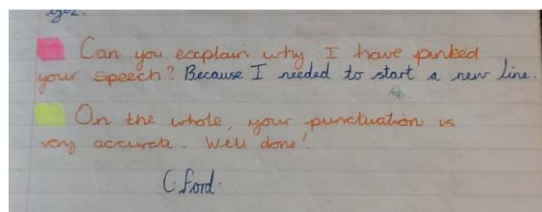 Can you explain why I have pinked
your speech? Because I needed to start a new line.
On the whole, your punctuation is
very accurate. Well done!
C. Ford.